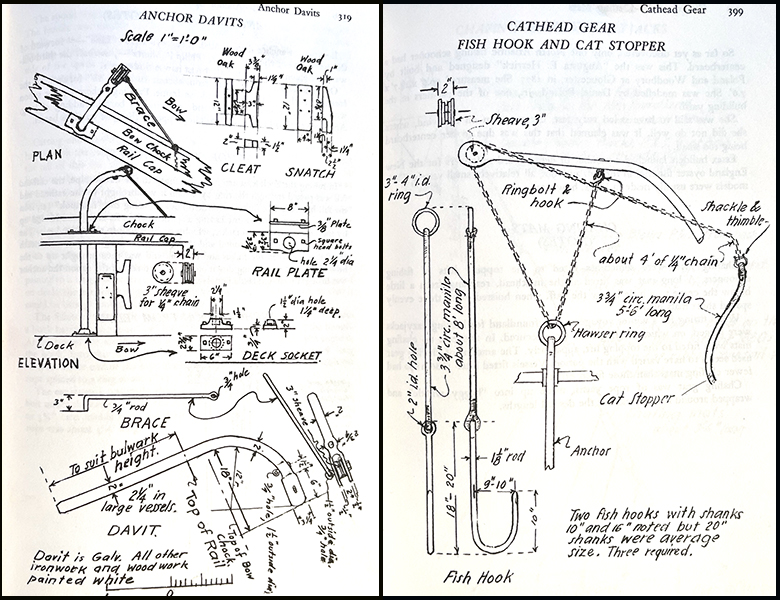 Anchor Davits 319
ANCHOR DAVITS
Scale 1"=1'-0"
Wood
Oak
Wood
Oak
1"
12"
12"
Brace
Bow
Bow Chock
Rail Cap
PLAN
CLEAT
SNATCH
8"
3/8" Plate
square
head bolts
hole 2 1/4" dia
RAIL PLATE
Chock
Rail Cap
2"
3" sheave
for 1/4" chain
2 1/4"
1 1/2" din hole
1 1/4" deep.
6"
DECK SOCKET
Deck
Bow
ELEVATION
3/4" hole
3"
3/4" rod
BRACE
3" sheave
2"
To suit bulwark
height.
2"
2 1/4" in
large vessels.
DAVIT.
18"
12"
Top of Rail
Top of Bow
Chock
3/4" hole, 1 1/2" outside dia,
1 1/2" outside dia.
3/4" hole
6"
Davit is Galv. All other
ironwork and woodwork
painted white
1 0
Cathead Gear 399
CATHEAD GEAR
FISH HOOK AND CAT STOPPER
2"
Sheave, 3"
3"-4" i.d.
ring
Ringbolt &
hook
Shackle &
thimble
about 4' of 1/4" chain
3 3/4" circ. manila
5'-6' long
3 3/4" circ. manila
about 8' long
Hawser ring
2" i.d. hole
Cat Stopper
Anchor
1 1/8" rod
18"-20"
9"-10"
10"
Two fish hooks with shanks
10" and 16" noted but 20"
shanks were average
size. Three required.
Fish Hook